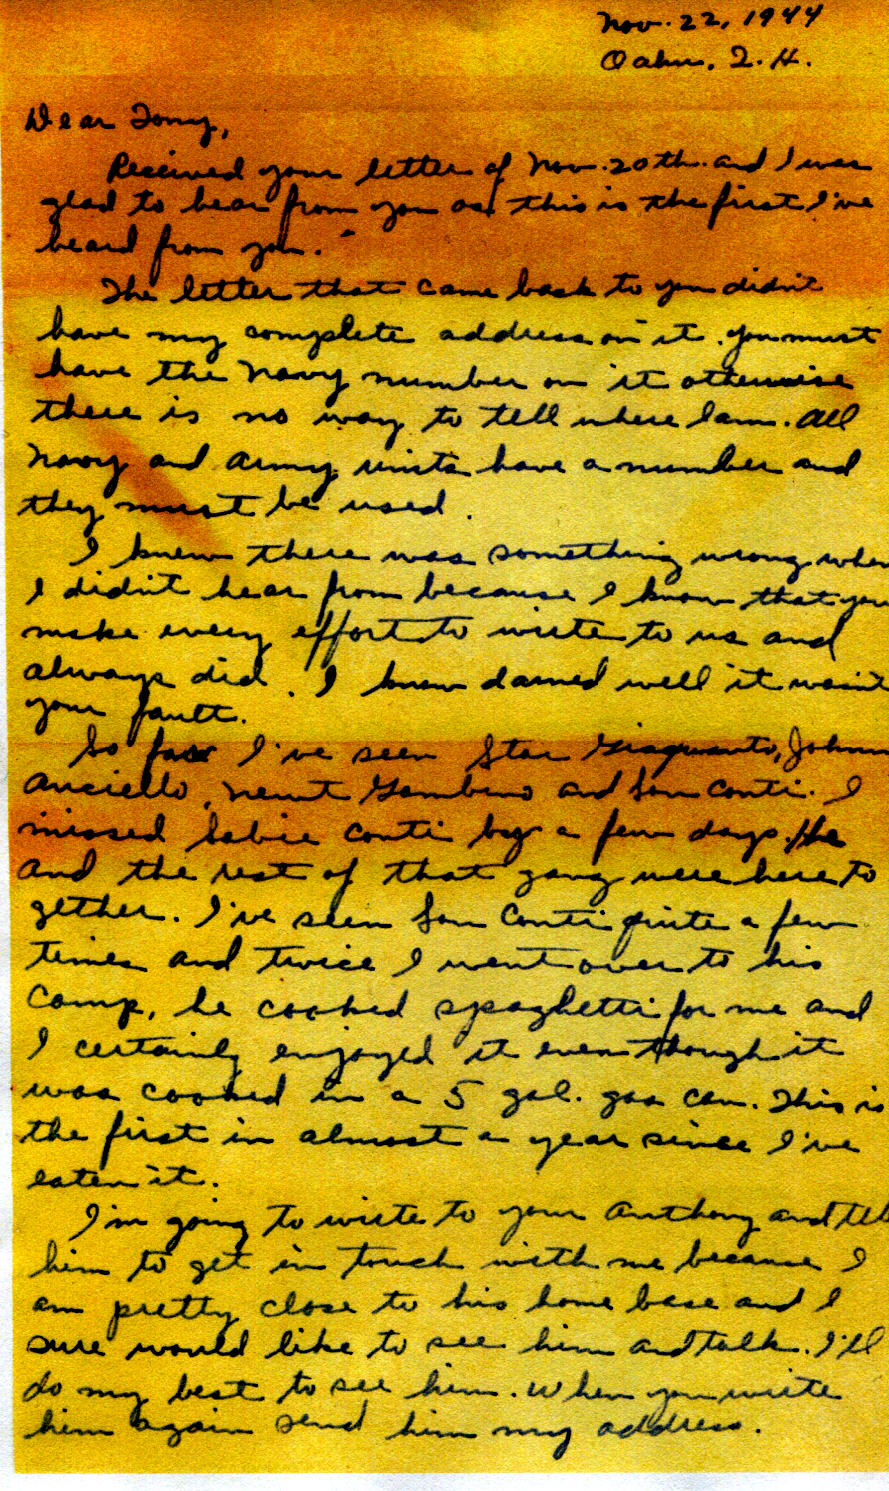 Nov. 22, 1944
Oahu, T. H.
Dear Tony,
Received your letter of Nov. 20th. and I was
glad to hear from you as this is the first I've
heard from you.
The letter that came back to you didn't
have my complete address on it. You must
have the Navy number on it otherwise
there is no way to tell where I am. All
Navy and Army units have a number and
they must be used.
I knew there was something wrong when
I didn't hear from because I know that you
make every effort to write to us and
always did. I knew darned well it wasn't
your fault.
So far I've seen Star Giaquinto, Johnn
Auciello, Newt Gambino and Sam Conti. I
missed Babie Conti by a few days. He
and the rest of that gang were here to
gether. I've seen Sam Conti quite a few
times and twice I went over to his
camp, he cooked spaghetti for me and
I certainly enjoyed it even though it
was cooked in a 5 gal. gas can. This is
the first in almost a year since I've
eaten it.
I'm going to write to your Anthony and tell
him to get in touch with me because I
am pretty close to his home base and I
sure would like to see him and talk. I'll
do my best to see him. When you write
him again send him my address.